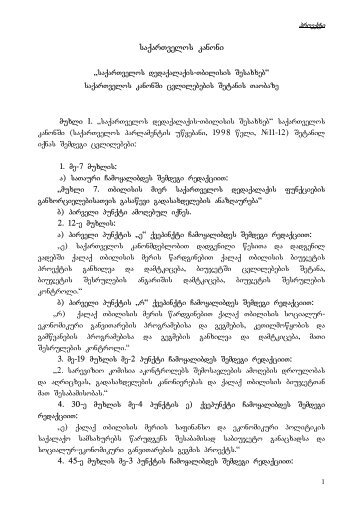 პროექტი
საქართველოს კანონი
„საქართველოს დედაქალაქის-თბილისის შესახებ“
საქართველოს კანონში ცვლილებების შეტანის თაობაზე
მუხლი 1. „საქართველოს დედაქალაქის-თბილისის შესახებ“ საქართველოს
კანონში (საქართველოს პარლამენტის უწყებანი, 1998 წელი, №11-12) შეტანილ
იქნას შემდეგი ცვლილებები:
1. მე-7 მუხლის:
ა) სათაური ჩამოყალიბდეს შემდეგი რედაქციით:
„მუხლი 7. თბილისის მიერ საქართველოს დედაქალაქის ფუნქციების
განხორციელებისათვის გასაწევი გადასახდელების ანაზღაურება“
ბ) პირველი პუნქტი ამოღებულ იქნეს.
2. 12-ე მუხლის:
ა) პირველი პუნქტის „ე“ ქვეპუნქტი ჩამოყალიბდეს შემდეგი რედაქციით:
„ე) საქართველოს კანონმდებლობით დადგენილი წესითა და დადგენილ
ვადებში ქალაქ თბილისის მერის წარდგინებით ქალაქ თბილისის ბიუჯეტის
პროექტის განხილვა და დამტკიცება, ბიუჯეტში ცვლილებების შეტანა,
ბიუჯეტის შესრულების ანგარიშის დამტკიცება, ბიუჯეტის შესრულების
კონტროლი.“
ბ) პირველი პუნქტის „რ“ ქვეპუნქტი ჩამოყალიბდეს შემდეგი რედაქციით:
„რ) ქალაქ თბილისის მერის წარდგინებით ქალაქ თბილისის სოციალურ-
ეკონომიკური განვითარების პროგრამებისა და გეგმების, კეთილმოწყობის და
გამწვანების პროგრამებისა და გეგმების განხილვა და დამტკიცება, მათი
შესრულების კონტროლი.“
3. მე-19 მუხლის მე-2 პუნქტი ჩამოყალიბდეს შემდეგი რედაქციით:
„2. სარევიზიო კომისია აკონტროლებს შემოსავლების ამოღების დროულობას
და აღრიცხვას, გადასახდელების კანონიერებას და ქალაქ თბილისის ბიუჯეტთან
მათ შესაბამისობას.“
4. 30-ე მუხლის მე-4 პუნქტის ე) ქვეპუნქტი ჩამოყალიბდეს შემდეგი
რედაქციით:
„ე) ქალაქ თბილისის მერიის საფინანსო და ეკონომიკური პოლიტიკის
საქალაქო სამსახურებს წარუდგენს შესაბამისად საბიუჯეტო განაცხადსა და
სოციალურ-ეკონომიკური განვითარების გეგმის პროექტს.“
4. 45-ე მუხლის მე-3 პუნქტის ჩამოყალიბდეს შემდეგი რედაქციით:
1